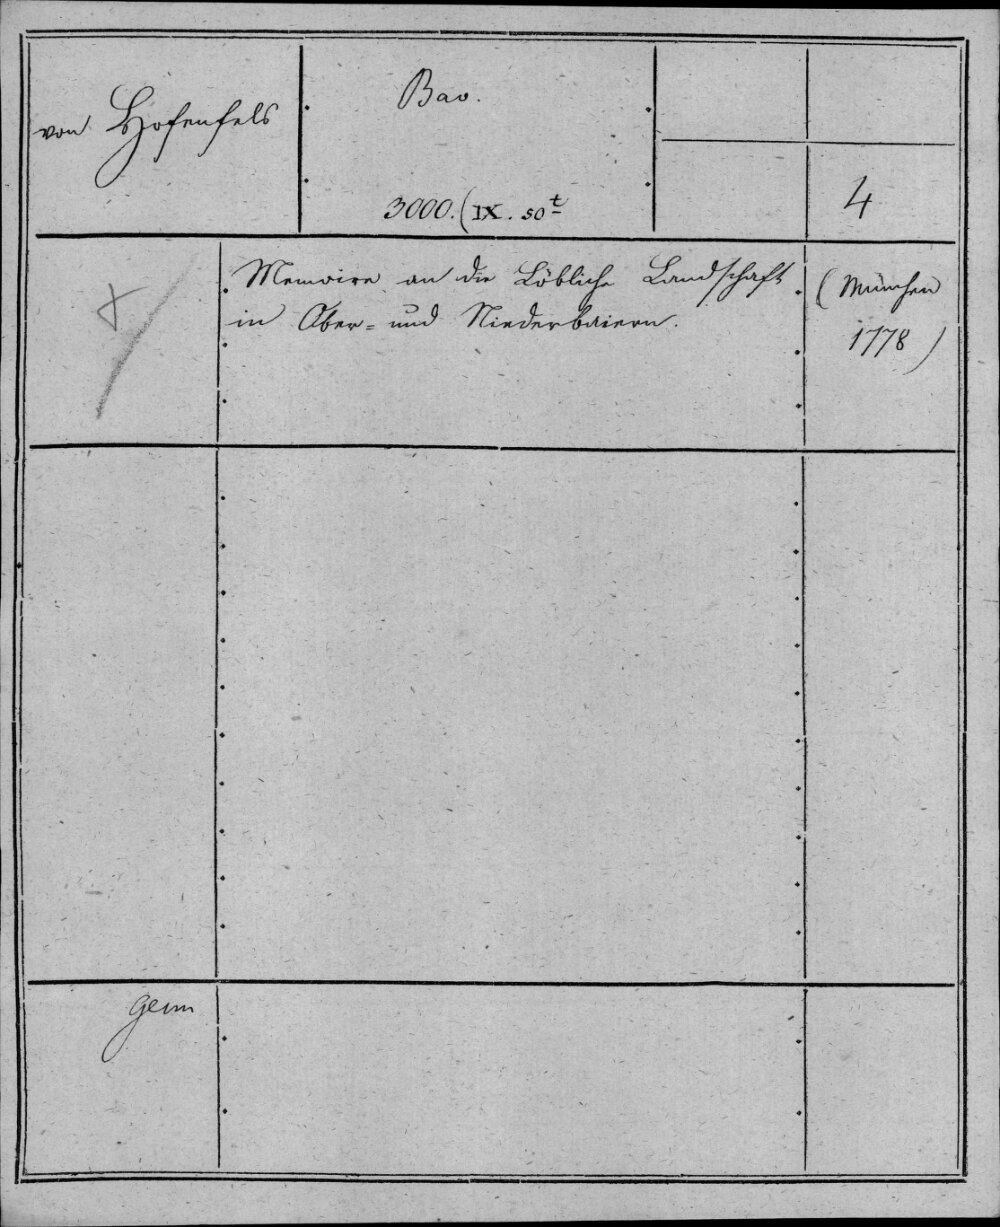 von Hofenfels
Bav.
3000. (IX. 50t
4
Memoire an die Löbliche Landschaft
in Ober= und Niederbaiern.
(München
1778)